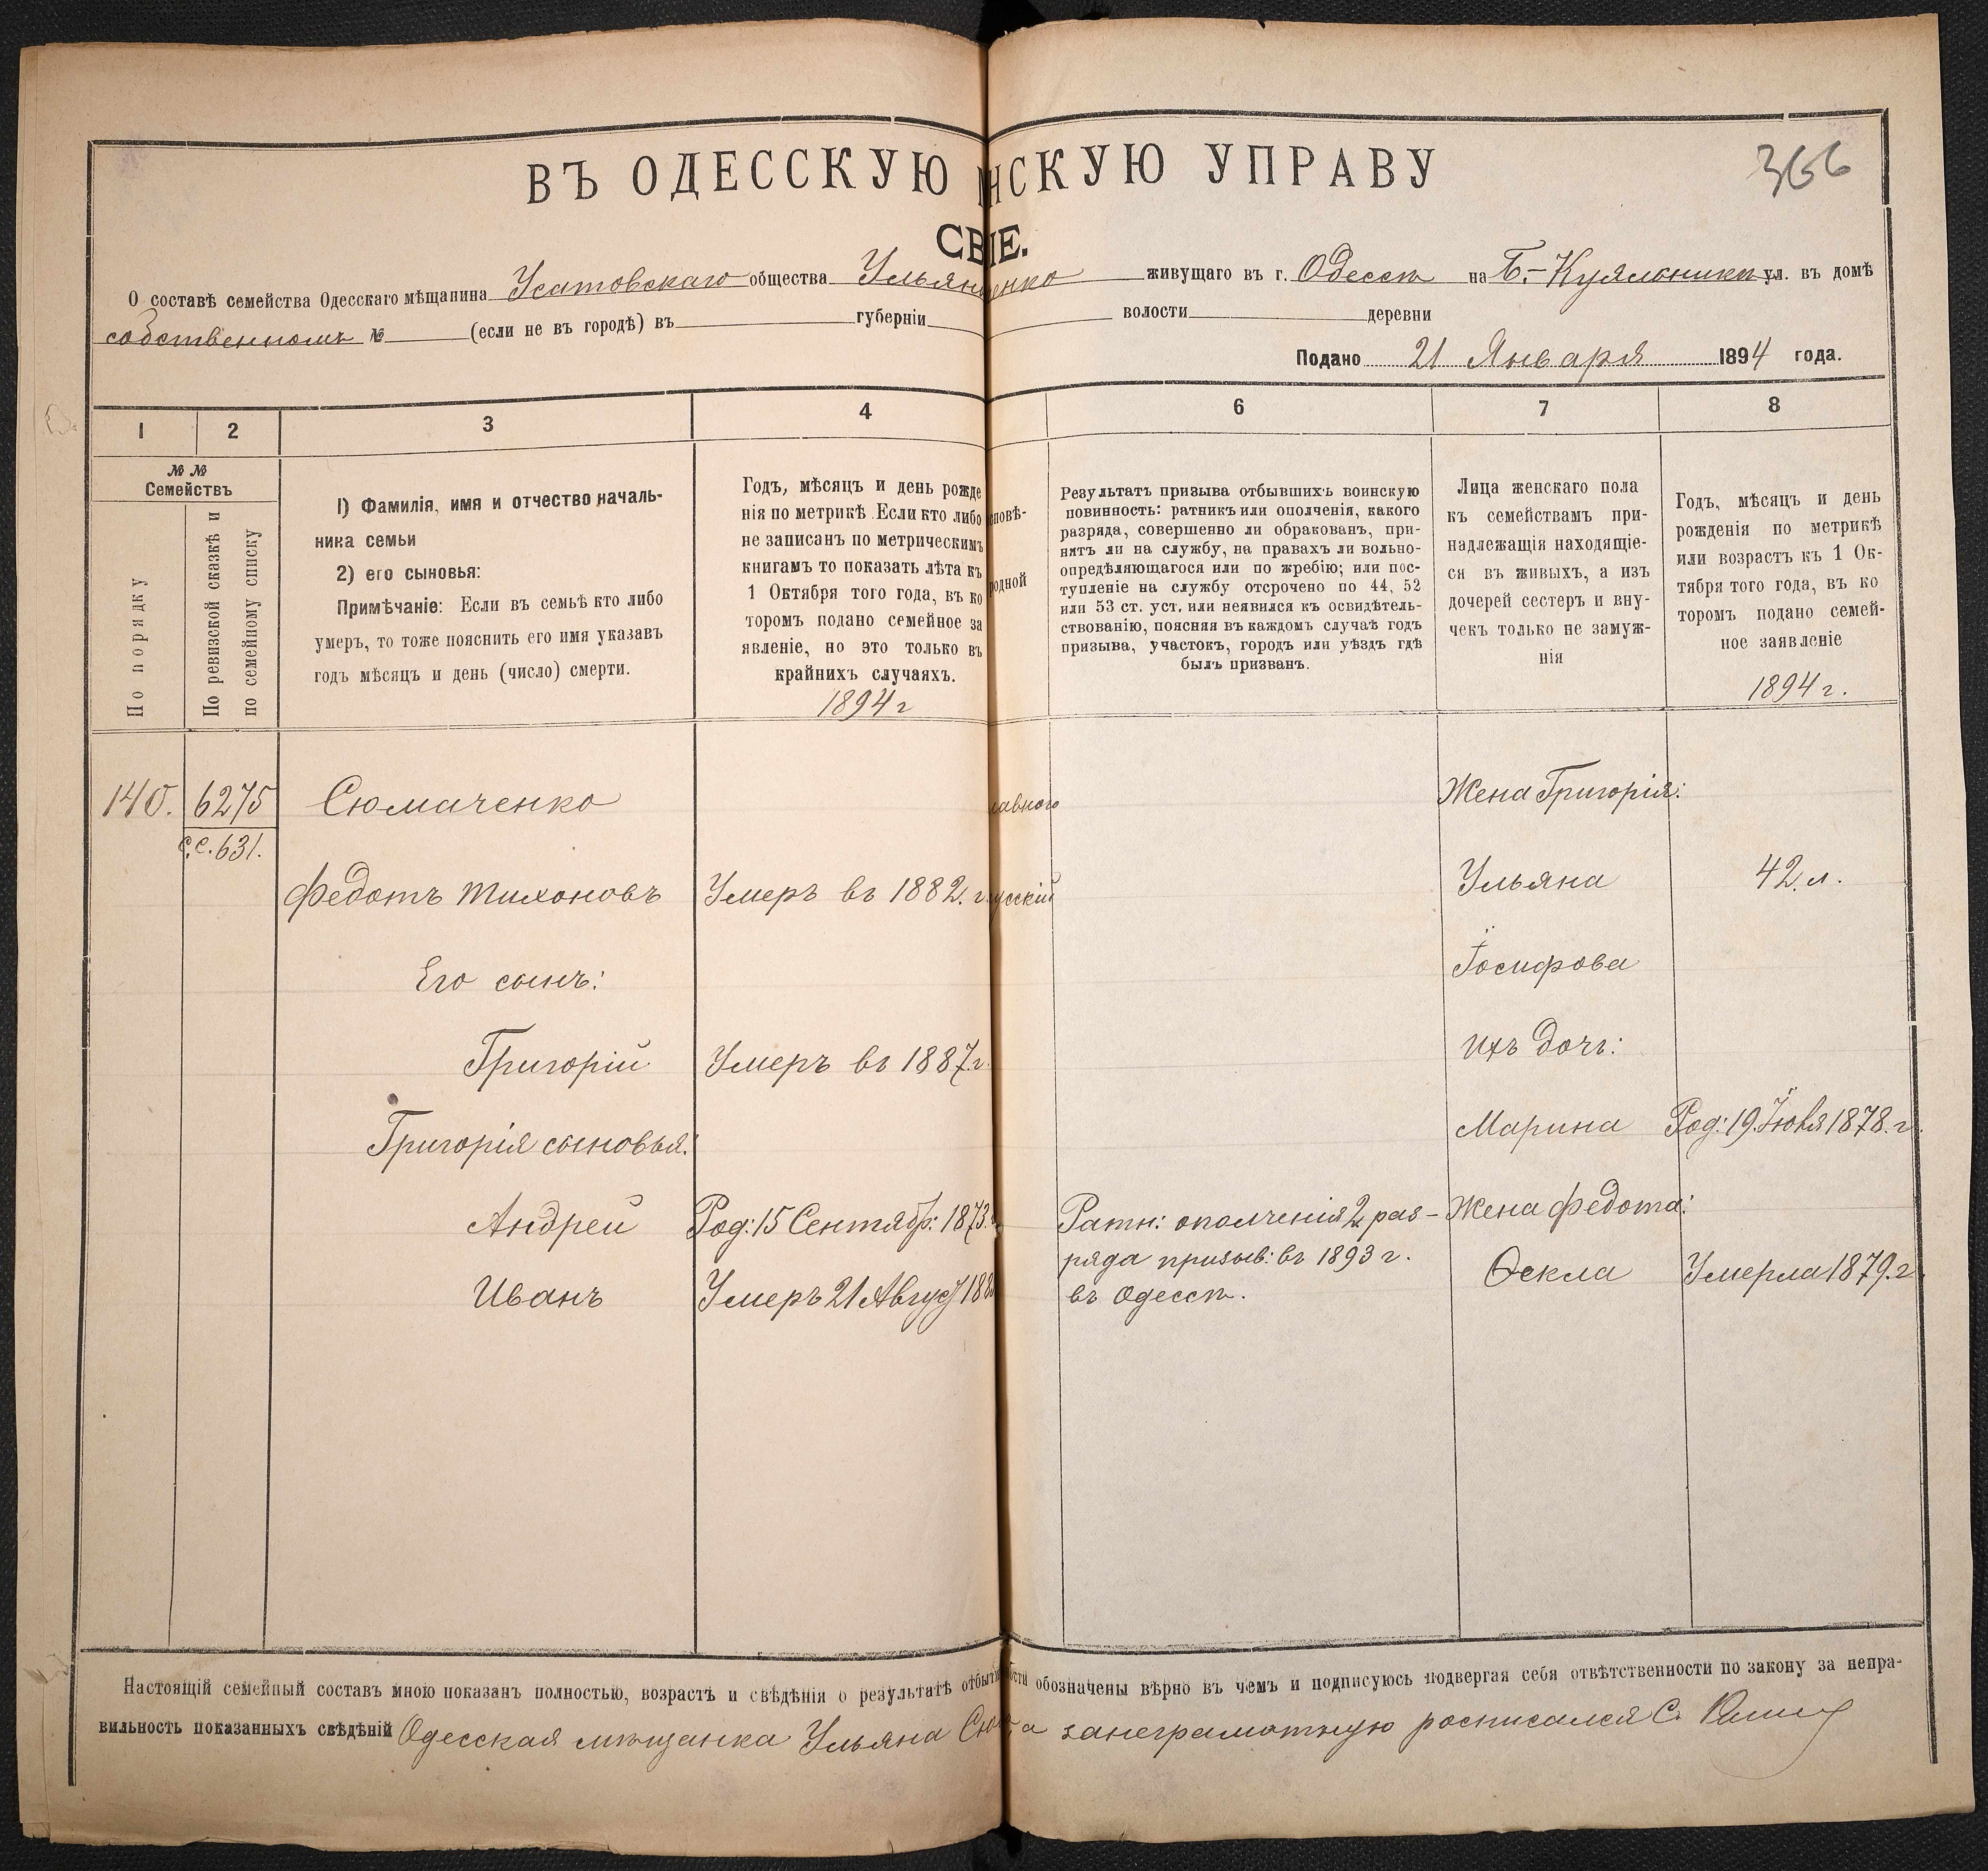 366
ВЪ ОДЕССКУЮ НСКУЮ УПРАВУ
СВ IE.
О составѣ семейства Одесскаго мѣщанина Усатовскаго общества Ульян енко живущаго въ г. Одессѣ на Б.-Куяльникѣ ул. въ домѣ
собственномъ № (если не въ городѣ) въ губерніи волости деревни
Подано 21 Января 1894 года.
1 2 3 4 6 7 8
№ №
Семействъ
По порядку
По ревизской сказкѣ и
по семейному списку
1) Фамилія, имя и отчество началь-
ника семьи
2) его сыновья:
Примѣчаніе: Если въ семьѣ кто либо
умеръ, то тоже пояснить его имя указавъ
годъ мѣсяцъ и день (число) смерти.
Годъ, мѣсяцъ и день рожде
нія по метрикѣ. Если кто либо
не записанъ по метрическимъ
книгамъ то показать лѣта къ
1 Октября того года, въ ко
торомъ подано семейное за
явленіе, но это только въ
крайнихъ случаяхъ.
1894 г
повѣ-
родной
Результатъ призыва отбывшихъ воинскую
повинность: ратникъ или ополченія, какого
разряда, совершенно ли обракованъ, при-
нятъ ли на службу, на правахъ ли вольно-
опредѣляющагося или по жребію; или пос-
тупленіе на службу отсрочено по 44, 52
или 53 ст. уст. или неявился къ освидѣтель-
ствованію, поясняя въ каждомъ случаѣ годъ
призыва, участокъ, городъ или уѣздъ гдѣ
былъ призванъ.
Лица женскаго пола
къ семействамъ при-
надлежащія находящіе-
ся въ живыхъ, а изъ
дочерей сестеръ и вну-
чекъ только не замуж-
нія
Годъ, мѣсяцъ и день
рожденія по метрикѣ
или возрастъ къ 1 Ок-
тября того года, въ ко
торомъ подано семей-
ное заявленіе
1894 г.
140. 6275 Сюмаченко лавного Жена Григорія:
с.с. 631.
Федотъ Тихоновъ Умеръ въ 1882. г. усскій Ульяна 42. л.
Его сынъ: Іосифова
Григорій Умеръ въ 1887. г. Ихъ дочь:
Григорія сыновья: Марина Род: 19. Іюля 1878. г.
Андрей Род: 15 Сентябр: 1873. Ратн: ополченія 2 раз- Жена Федота:
ряда призыв: въ 1893 г.
Иванъ Умеръ 21 Август 188 въ Одессѣ. Ѳекла Умерла 1879. г.
Настоящій семейный составъ мною показанъ полностью, возрастъ и свѣдѣнія о результатѣ отбыті ости обозначены вѣрно въ чемъ и подписуюсь подвергая себя отвѣтственности по закону за непра-
вильность показанныхъ свѣдѣній Одесская мѣщанка Ульяна Сю а за неграмотную росписался С.